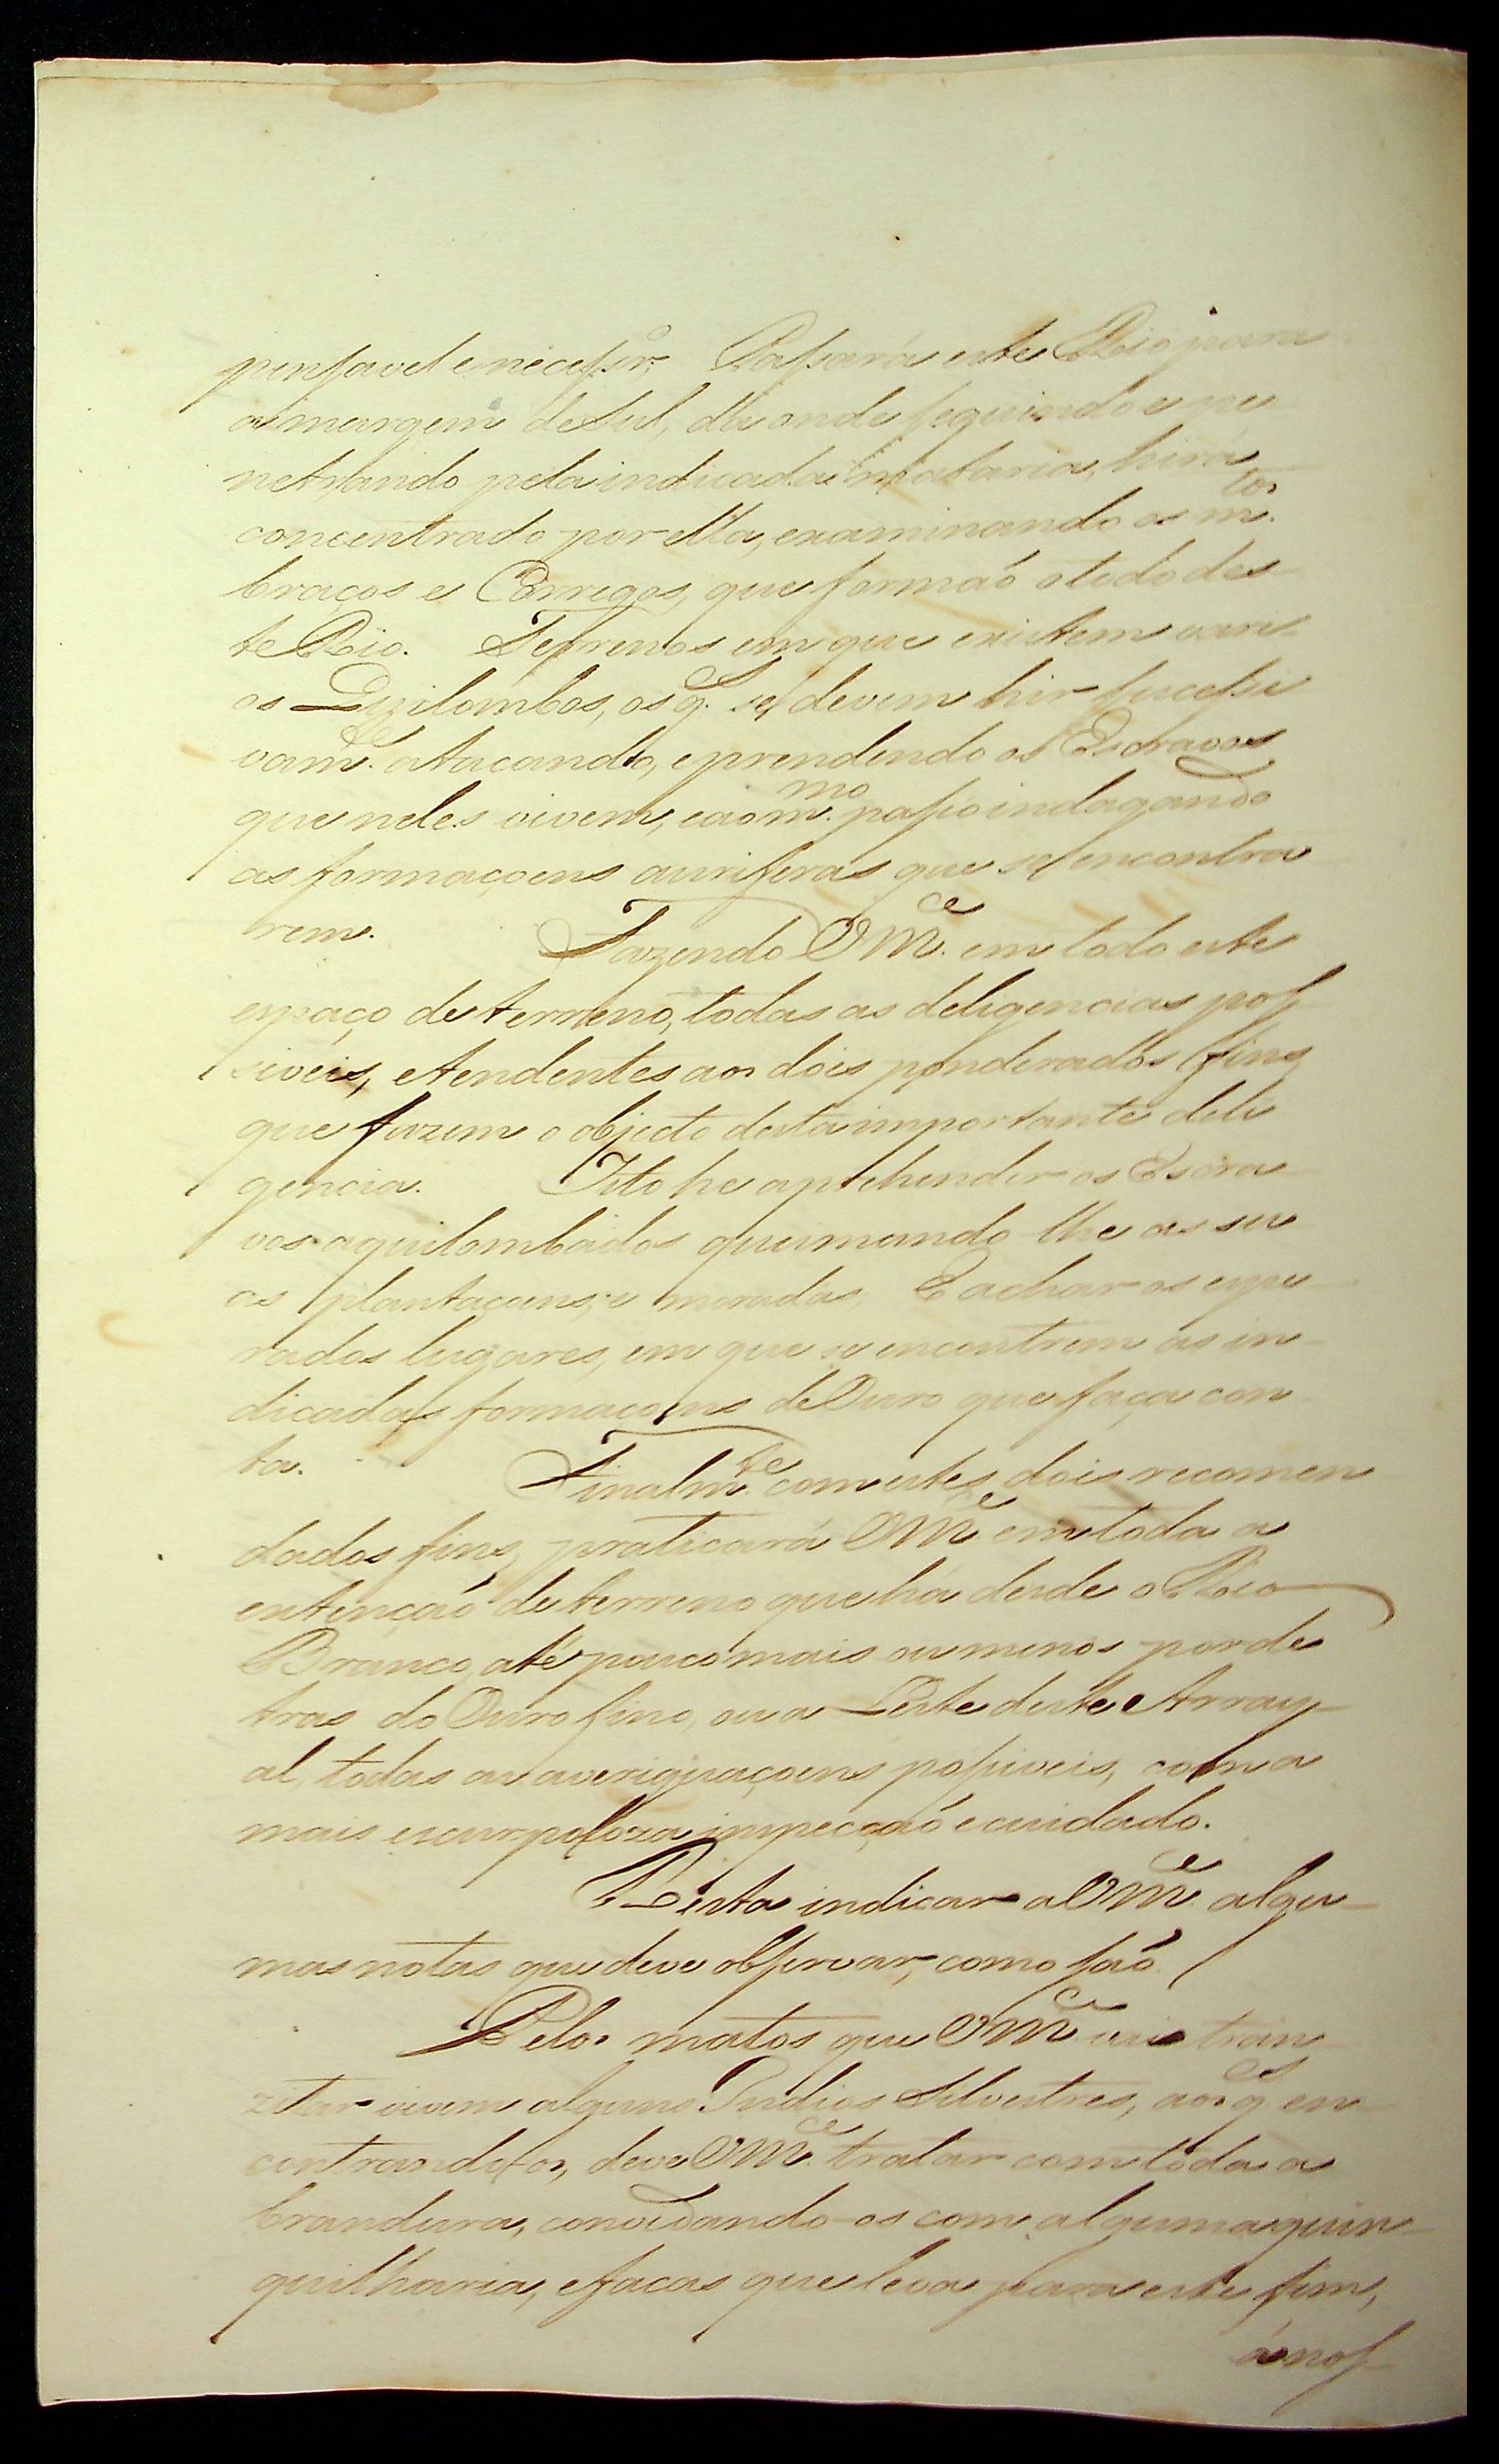 pensavel e necessr.º Passará este Rio para
a margem de Sul, d'a onde seguindo e pe
netrando pela indicada mataria, hirá
concentrado por ella, examinando os m.tos
braços e Corregos, que formaó o todo des
te Rio. Terrenos em que existem vari
os Quilombos, os q.es se devem hir sucessi
vam.te atacando, e prendendo os Escravos
que neles vivem, e ao m.mo passo indagando
as formaçoens auriferas que se encontra
rem. Fazendo VM.ce em todo este
espaço de terreno, todas as deligencias pos
siveis, e tendentes aos dois ponderados fins
que fazem o objecto desta importante deli
gencia. Isto he aprehender os Escra
vos aquilombados queimando-lhe as su
as plantaçoens, e moradas. E achar os espe
rados lugares, em que se encontrem as in
dicadas formaçoens de Ouro que faça con
ta. Finalm.te com estes dois recomen
dados fins, praticará VM.ce em toda a
extençaó de terreno que há desde o Rio
Branco, até pouco mais ou menos por de
tras do Ouro fino, ou a Leste deste Array
al, todas as averiguaçoens possiveis, com a
mais escurpoloza inspecçaó e cuidado.
Resta indicar a VM.ce algu
mas notas que deve observar, como saó
Pelos matos que VM.ce vai tran
zitar vivem alguns Indios Silvestres, aos q.es en
contrando-os, deve VM.ce tratar com toda a
brandura, convidando-os com alguma quin
quilharia, e facas que leva para este fim,
á nos